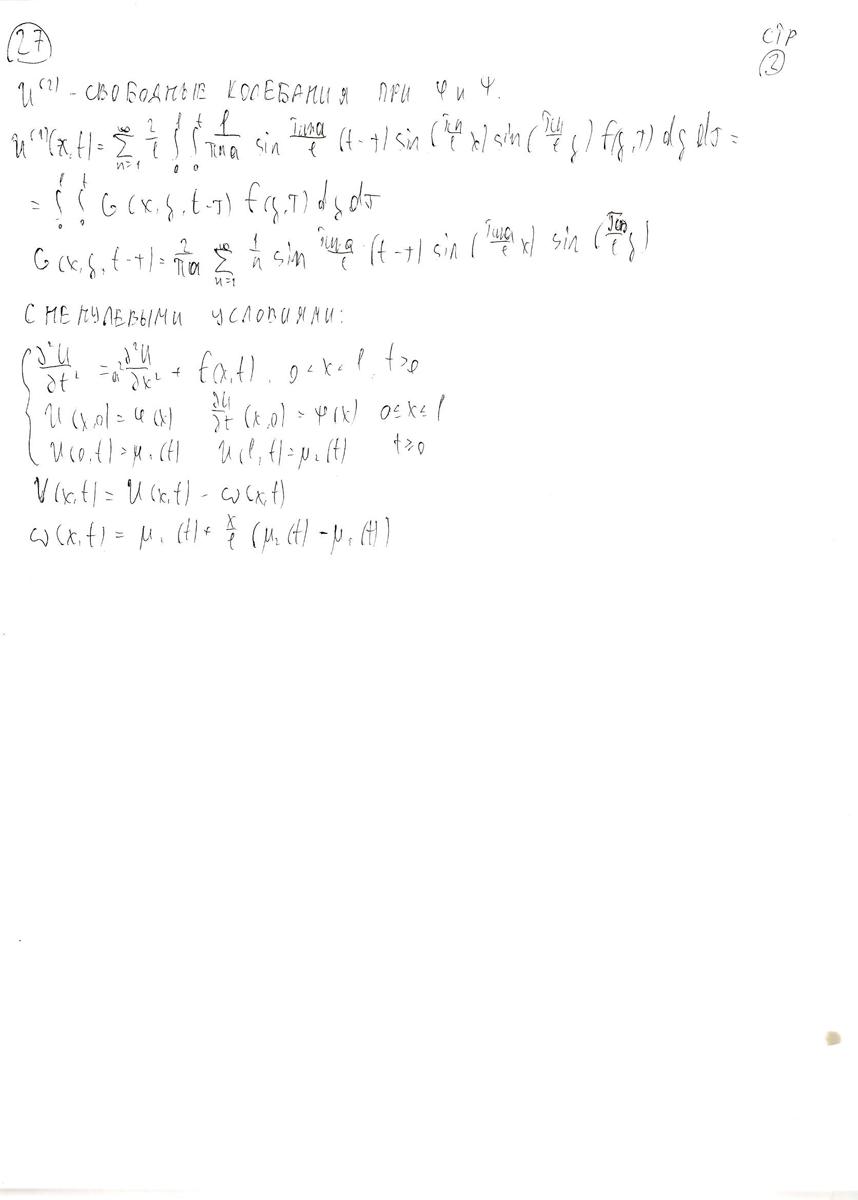 27
стр 2
u⁽²⁾ - СВОБОДНЫЕ КОЛЕБАНИЯ ПРИ φ и ψ.
u⁽¹⁾(x,t) = ∑_{n=1}^{∞} 2/ℓ ∫₀^ℓ ∫₀^t ℓ/(πna) sin (πna/ℓ) (t-τ) sin (πn/ℓ x) sin (πn/ℓ ξ) f(ξ,τ) dξ dτ =
= ∫₀^ℓ ∫₀^t G(x,ξ,t-τ) f(ξ,τ) dξ dτ
G(x,ξ,t-τ) = 2/(πa) ∑_{n=1}^{∞} 1/n sin (πna/ℓ) (t-τ) sin (πna/ℓ x) sin (πn/ℓ ξ)
С НЕНУЛЕВЫМИ УСЛОВИЯМИ:
{ ∂²u/∂t² = a² ∂²u/∂x² + f(x,t), 0 < x < ℓ, t > 0
u(x,0) = φ(x) ∂u/∂t (x,0) = ψ(x) 0 ≤ x ≤ ℓ
u(0,t) = μ₁(t) u(ℓ,t) = μ₂(t) t ≥ 0
V(x,t) = U(x,t) - ω(x,t)
ω(x,t) = μ₁(t) + x/ℓ (μ₂(t) - μ₁(t))